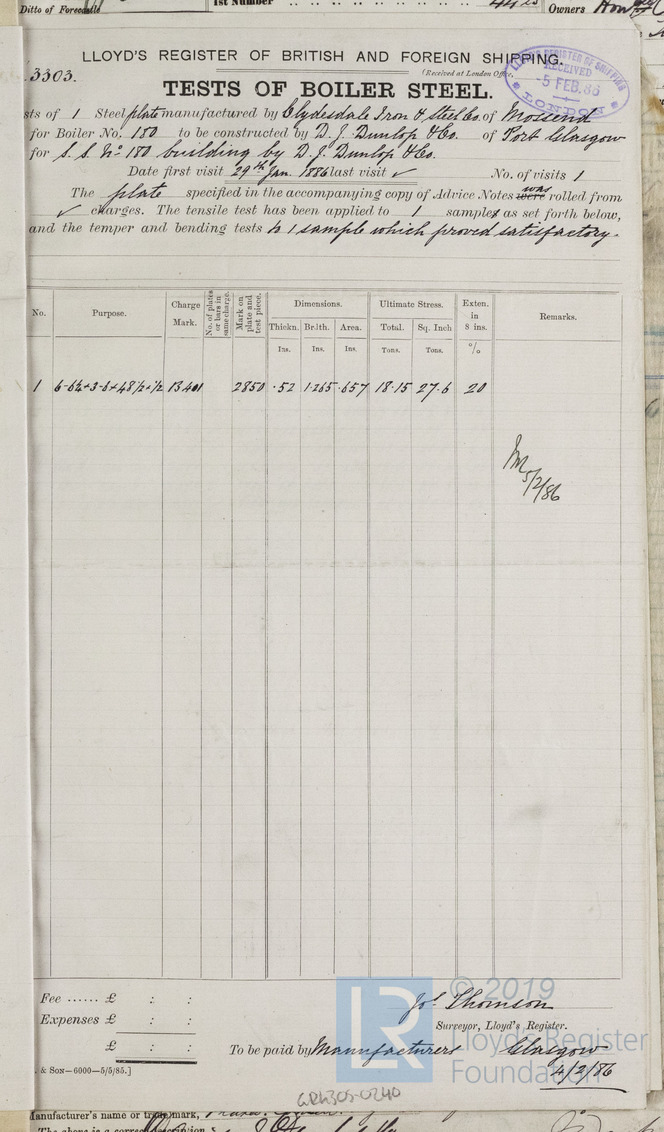 Ditto of Forecastle
1st Number
Owners
LLOYD'S REGISTER OF BRITISH AND FOREIGN SHIPPING.
3303.
(Received at London Office,
LLOYD'S REGISTER OF SHIPPING
RECEIVED
5 FEB. 86
LONDON
TESTS OF BOILER STEEL.
sts of 1 Steel plate manufactured by Clydesdale Iron & Steel Co. of Mossend
for Boiler No. 180 to be constructed by D. J. Dunlop & Co. of Port Glasgow
for S.S. No 180 building by D. J. Dunlop & Co.
Date first visit 29th Jan. 1886 last visit ✓ No. of visits 1
The plate specified in the accompanying copy of Advice Notes were was rolled from
✓ charges. The tensile test has been applied to 1 samples as set forth below,
and the temper and bending tests to 1 sample which proved satisfactory.
No. Purpose. Charge Mark. No. of plates or bars in same charge. Mark on plate and test piece. Dimensions. Ultimate Stress. Exten. in 8 ins. Remarks.
Thickn. Br.lth. Area. Total. Sq. Inch
Ins. Ins. Ins. Tons. Tons. %
1 6-6¼ + 3-6 + 48/2 + ½ 13401 2850 .52 1.265 .657 18.15 27.6 20
5/2/86
Fee ...... £ : :
Expenses £ : :
£ : :
Jos Thomson
Surveyor, Lloyd's Register.
To be paid by Manufacturers Glasgow
4/2/86
& SON—6000—5/5/85.]
© 2019
LR
Lloyd's Register
Foundation
GRK305-0240
Manufacturer's name or trade mark,
The above is a correct description